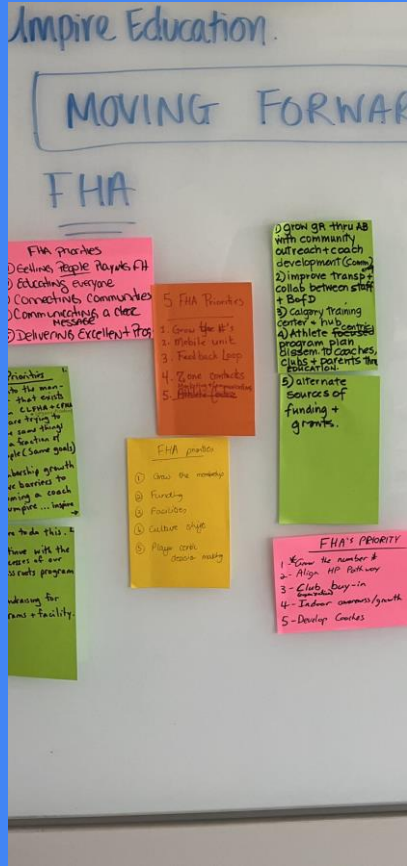 Umpire Education.
MOVING FORWAR
FHA
FHA priorities
Getting People Playing FH
Educating everyone
Connecting Communities
Communicating a clear
MESSAGE
Delivering Excellent Prog
5 FHA Priorities
1. Grow the #'s
2. Mobile unit
3. Feedback Loop
4. Zone contacts
5. Athlete
1) Grow GR thru AB
with community
outreach + coach
development (Comm)
2) improve transp +
collab between staff
+ BofD
3) Calgary Training
center + hub
4) Athlete focused centric
program plan
dissem. to coaches,
clubs + parents thru
EDUCATION.
5) alternate
sources of
funding +
grants.
Priorities
to the man-
that exists
CLFHA + CFHA
are trying to
same things
a fraction of
ple (Same goals)
bership growth
ve barriers to
ming a coach
umpire... inspire
to do this.
tinue with the
cesses of our
ssroots program
ndraising for
rams + facility.
FHA priorities
1 Grow the membership
2 Funding
3 Facilities
4 Culture style
5 Player centric
decision making
FHA'S PRIORITY
1 * Grow the number *
2 - Align HP Pathway
3 - Club buy-in
4 - Indoor awareness/growth
5 - Develop Coaches